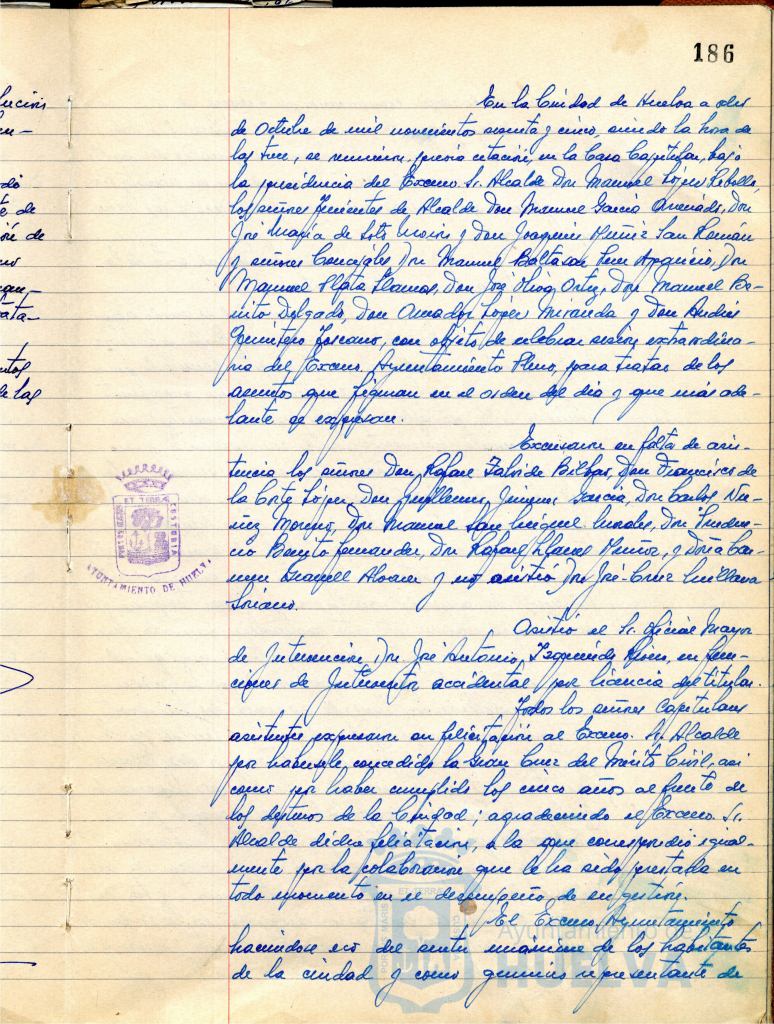 186
En la Ciudad de Huelva a
de Octubre de mil novecientos sesenta y cinco, siendo la hora de
las trece, se reunieron, previa citación, en la Casa Capitular, bajo
la presidencia del Excmo. Sr. Alcalde Don Manuel López Rebollo,
los señores Tenientes de Alcalde Don Manuel García Don
José María de Soto y Don Joaquín Muñiz San Román
y señores Concejales Don Manuel Baltasar Don
Manuel Plata Llamas, Don José Ortiz, Don Manuel Be-
nito Delgado, Don Amador López Miranda y Don Andrés
Quintero Toscano, con objeto de celebrar sesión extraordina-
ria del Excmo. Ayuntamiento Pleno, para tratar de los
asuntos que figuran en el orden del día y que más ade-
lante se expresan.
Excusaron su falta de asis-
tencia los señores Don Rafael Bilbao, Don Francisco de
la Corte López, Don Guillermo Jiménez García, Don Carlos Nú-
ñez Moreno, Don Manuel San Miguel Don Pruden-
cio Benito Fernández, Don Rafael Muñoz, y Doña Car-
men Alvarez y no asistió Don José-Cruz
Soriano.
Asistió el Sr. Oficial Mayor
de Intervención, Don José Antonio Izquierdo en fun-
ciones de Interventor accidental por licencia del titular.
Todos los señores Capitulares
asistentes, expresaron su felicitación al Excmo. Sr. Alcalde
por habérsele concedido la Gran Cruz del Mérito Civil, así
como por haber cumplido los cinco años al frente de
los destinos de la Ciudad; agradeciendo el Excmo. Sr.
Alcalde dicha felicitación, a la que correspondió igual-
mente por la colaboración que le ha sido prestada en
todo momento en el desempeño de su gestión.
El Excmo. Ayuntamiento
haciéndose eco del sentir unánime de los habitantes
de la ciudad y como genuino representante de
AYUNTAMIENTO DE HUELVA
Ayuntamiento de
HUELVA